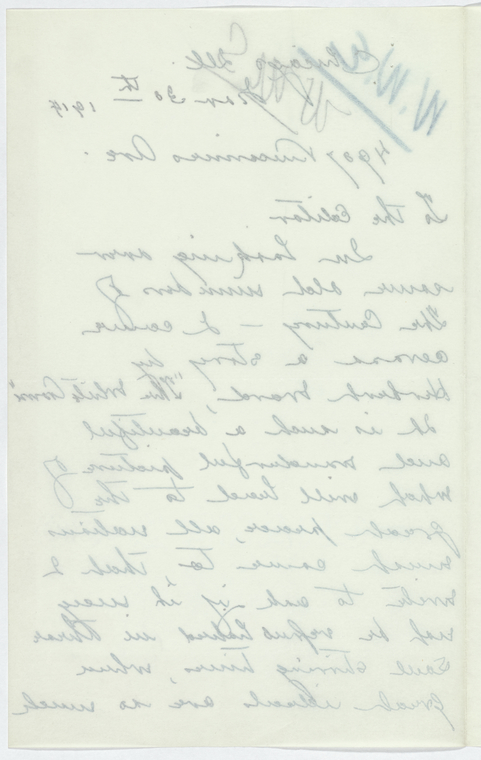 Chicago Ill.
Nov 30th 1914
4907 Vincennes Ave.
To the Editor
In looking over
some old numbers of
The Century – I came
across a story by
Herbert Ward, "The White Crown"
It is such a beautiful
and wonderful picture of
what will lead to the
great peace, all nations
must come to that I
write to ask if it may
not be republished in these
soul stirring times, when
great ideals are so much
W.W.